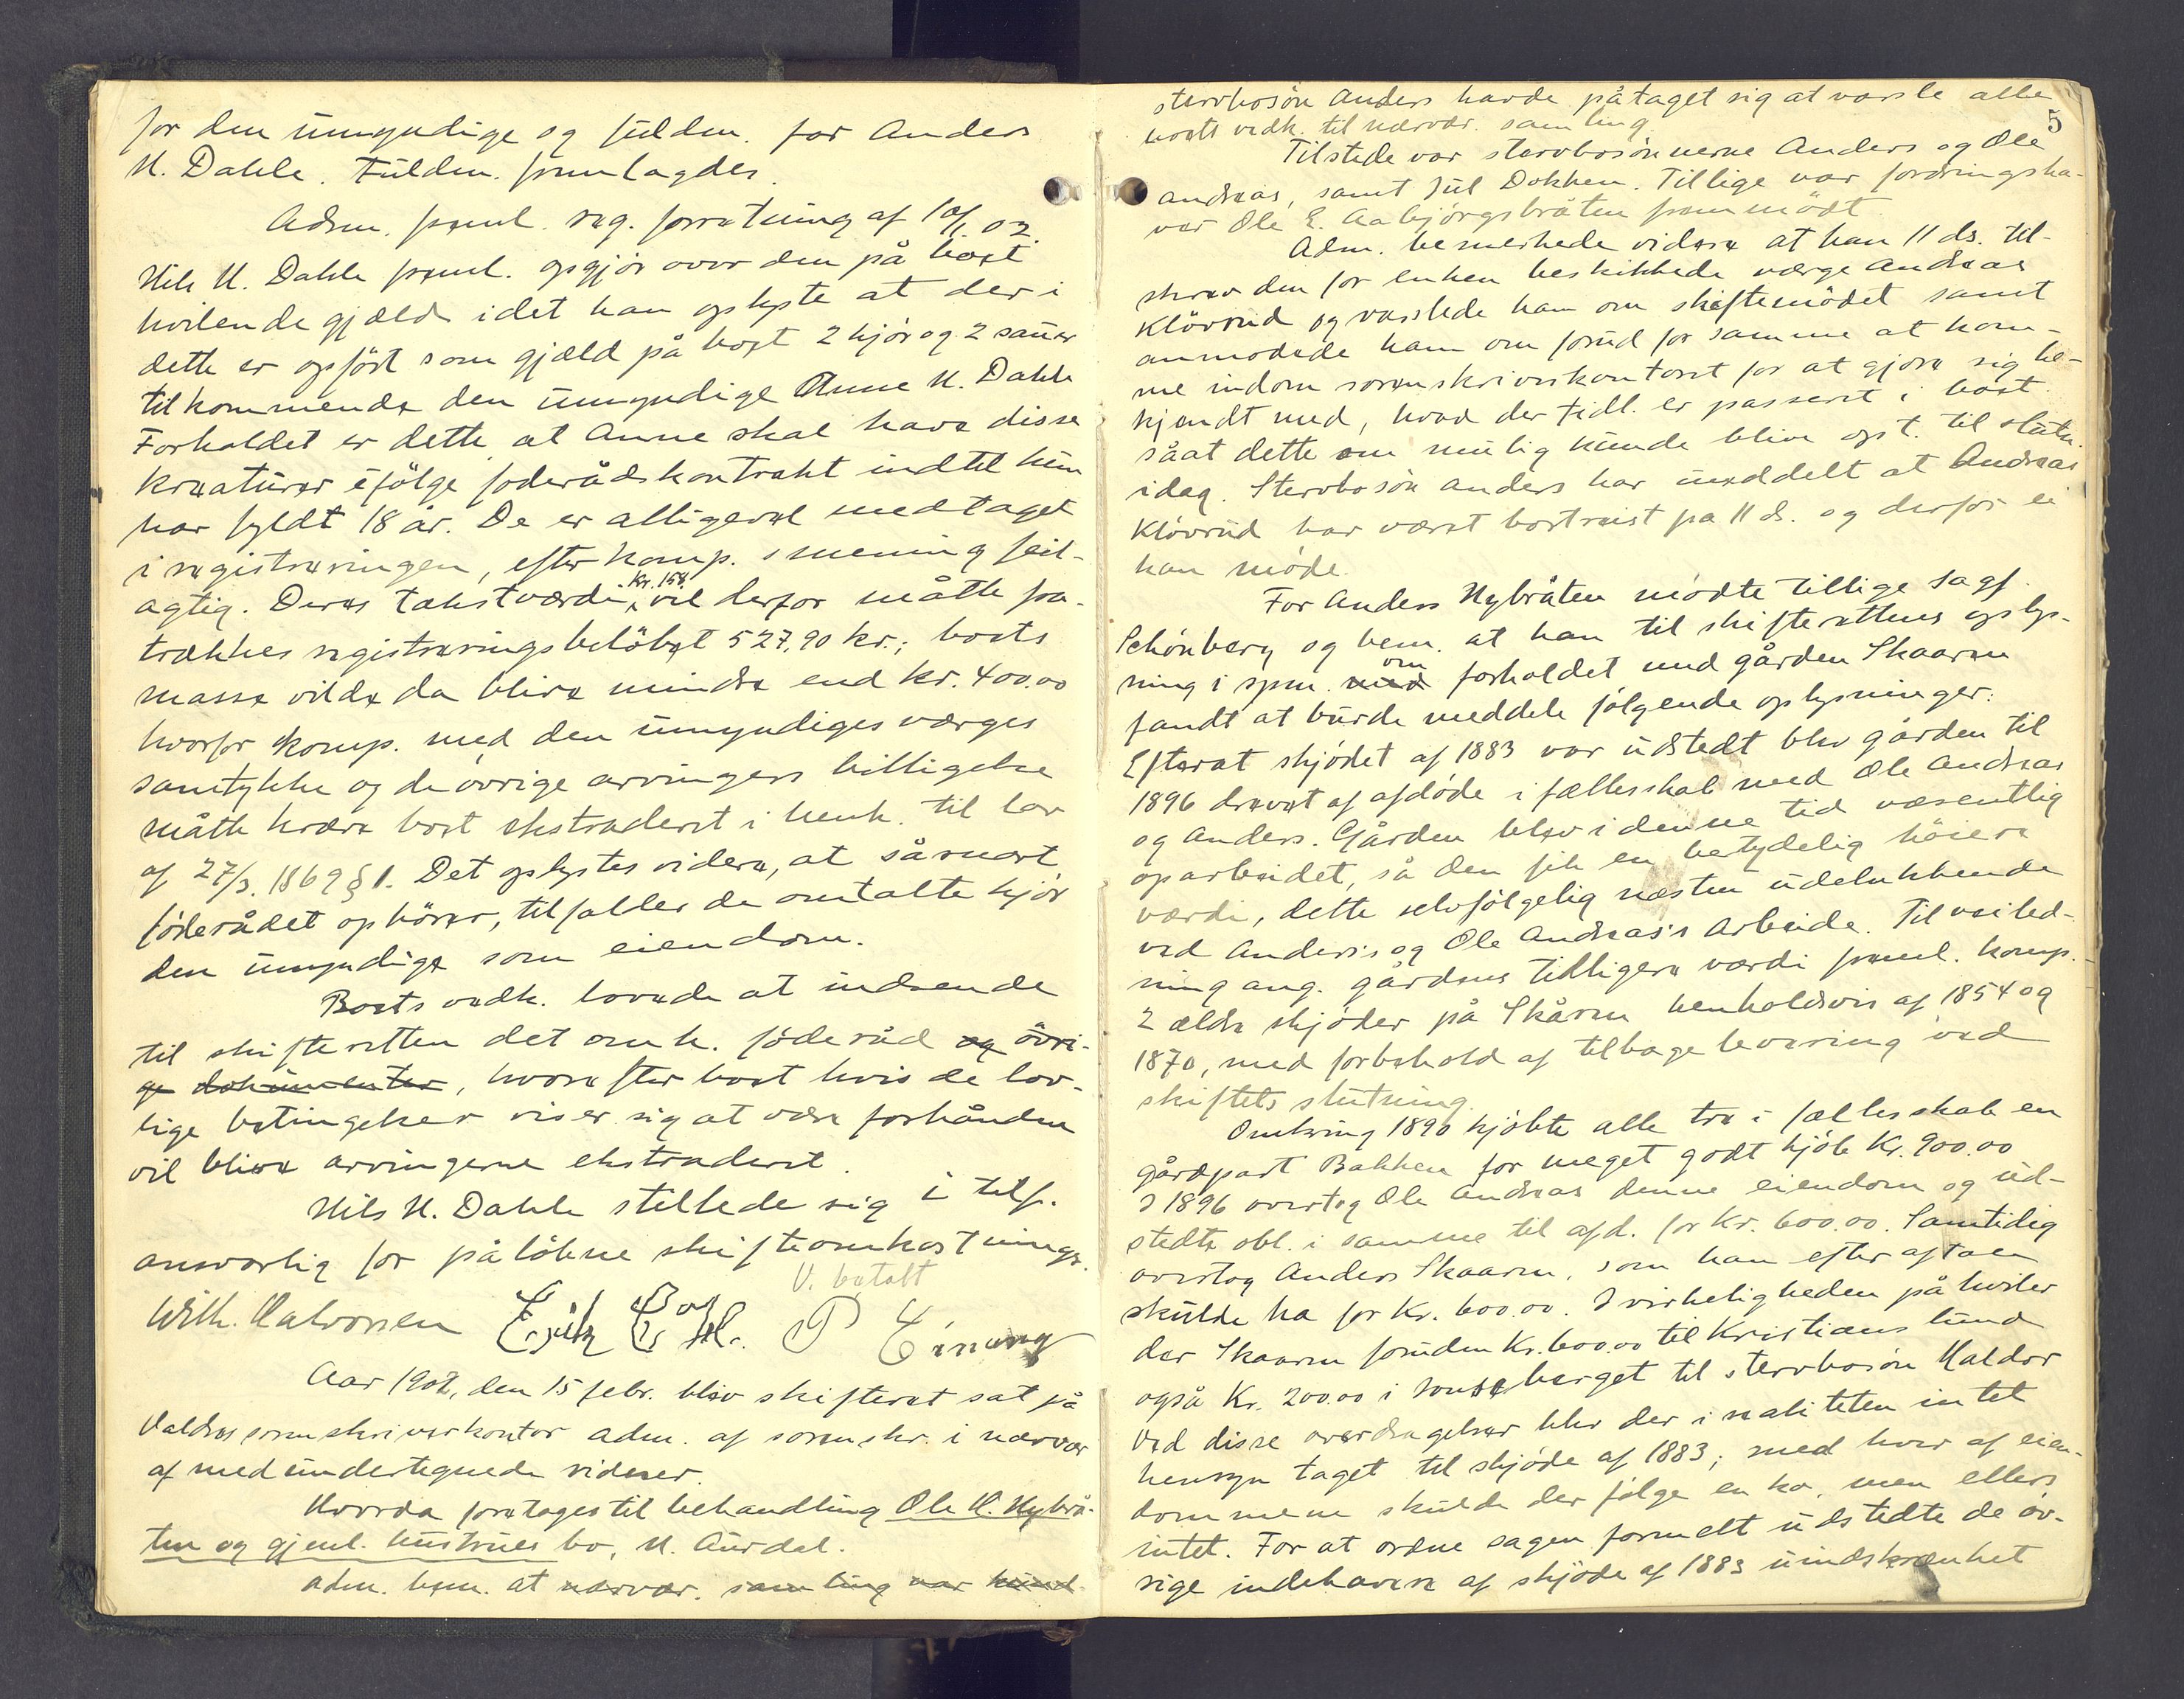 for den umyndige og fuldm. for Anders
N. Dahle. Fuldm. fremlagdes.
Adm. freml. reg. forretning af 10/1 02.
Nils N. Dahle freml. opgjör over den på boet
hvilende gjæld idet han oplyste at der i
dette er opfört som gjæld på boet 2 kjör og 2 sauer
tilkommende den umyndige Anne N. Dahle
Forholdet er dette at Anne skal have disse
kreaturer ifölge föderådskontrakt indtil hun
har fyldt 18 år. De er alligevel medtaget
i registreringen, efter komp.s mening feil-
agtig. Deres takstværdi, kr. 158, vil derfor måtte fra-
trækkes registreringsbelöbet 527,90 kr.; boets
masse vilde da blive mindre end kr. 400.00
hvorfor komp. med den umyndiges værges
samtykke og de övrige arvingers billigelse
måtte kræve boet ekstraderet i henh. til lov
af 27/3. 1869 § 1. Det oplystes videre, at såsnart
föderådet ophörer, tilfalder de omtalte kjör
den umyndige som eiendom.
Boets vedk. lovede at indsende
til skifteretten det omh. föderåd og övri-
ge dokumenter, hvorefter boet hvis de lov-
lige betingelser viser sig at være forhånden
vil blive arvingerne ekstraderet.
Nils N. Dahle stillede sig i tilf.
ansvarlig for pålöbne skifteomkostninger.
V. betalt
With. Halvorsen
Aar 1902, den 15 febr. blev skifteret sat på
Valdres sorenskriverkontor adm. af sorenskr. i nærvær
af medundertegnede vidner.
Hvorda foretages til behandling Ole H. Nybrå-
ten og gjenl. hustrues bo, N. Aurdal.
Adm. bem. at nærvær. samling var kund-
5
stervbosön Anders havde påtaget sig at varsle alle
boets vedk. til nærvær. samling.
Tilstede var stervbosönnerne Anders og Ole
Andreas, samt Jul Dokken. Tillige var fordringsha-
ver Ole E. Aabjörgsbråten fremmödt.
Adm. bemerkede videre at han 11 ds. til-
skrev den for enken beskikkede værge Andreas
Klövrud og varslede ham om skiftemödet samt
anmodede ham om forud for samme at kom-
me indom sorenskriverkontoret for at gjöre sig be-
kjendt med, hvad der tidl. er passeret i boet
såat dette om mulig kunde blive opt. til slutn.
idag. Stervbosön Anders har meddelt at Andreas
Klövrud har været bortreist fra 11 ds. og derfor ei
kan möde.
For Anders Nybråten mödte tillige sagf.
Schönberg og bem. at han til skifterettens oplys-
ning i spm. med om forholdet med gården Skaaren
fandt at burde meddele fölgende oplysninger:
Efterat skjödet af 1883 var udstedt blev gården til
1896 drevet af afdöde i fællesskab med Ole Andreas
og Anders. Gården blev i denne tid væsentlig
oparbeidet, så den fik en betydelig höiere
værdi, dette selvfölgelig næsten udelukkende
ved Anders's og Ole Andreas's arbeide. Til veiled-
ning ang. gårdens tidligere værdi freml. komp.
2 ældre skjöder på Skåren henholdsvis af 1854 og
1870, med forbehold af tilbagelevering ved
skiftets slutning.
Omkring 1890 kjöbte alle tre i fællesskab en
gårdpart Bakken for meget godt kjöb kr. 900.00
I 1896 overtog Ole Andreas denne eiendom og ud-
stedte obl. i samme til afd. for kr. 600.00. Samtidig
overtog Anders Skaaren, som han efter aftalen
skulde ha for kr. 600.00. I virkeligheden påhviler
der Skaaren foruden kr. 600.00 til Kristians lund
også kr. 200.00 i til stervbosön Haldor
Ved disse overdragelser blev der i realiteten intet
hensyn taget til skjöde af 1883; med hver af eien-
dommene skulde der fölge en ko, men ellers
intet. For at ordne sagen formelt udstedte de öv-
rige indehavere af skjöde af 1883 uindskrænket